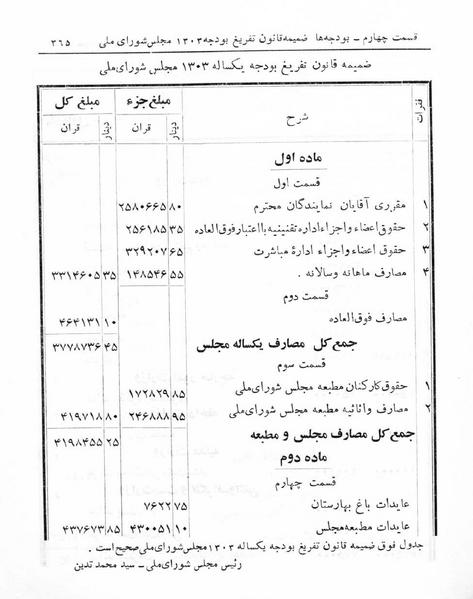 قسمت چهارم ـ بودجه‌ها ضمیمه قانون تفریغ بودجه ۱۳۰۳ مجلس شورای ملی ۳۶۵
ضمیمه قانون تفریغ بودجه یکساله ۱۳۰۳ مجلس شورای ملی
فقرات شرح مبلغ جزء مبلغ کل
قران دینار قران دینار
ماده اول
قسمت اول
۱ مقرری آقایان نمایندگان محترم ۲۵۸۰۶۶۵ ۸۰
۲ حقوق اعضاء واجزاء اداره تقنینیه بااعتبار فوق‌العاده ۲۵۶۱۸۵ ۳۵
۳ حقوق اعضاء واجزاء ادارهٔ مباشرت ۳۲۹۲۰۷ ۶۵
۴ مصارف ماهانه وسالانه . ۱۴۸۵۴۶ ۵۵ ۳۳۱۴۶۰۵ ۳۵
قسمت دوم
مصارف فوق‌العاده ۴۶۴۱۳۱ ۱۰
جمع کل مصارف یکساله مجلس ۳۷۷۸۷۳۶ ۴۵
قسمت سوم
۱ حقوق کارکنان مطبعه مجلس شورای‌ملی ۱۷۲۸۲۹ ۸۵
۲ مصارف واثاثیه مطبعه مجلس شورای‌ملی ۲۴۶۸۸۸ ۹۵ ۴۱۹۷۱۸ ۸۰
جمع کل مصارف مجلس و مطبعه ۴۱۹۸۴۵۵ ۲۵
ماده دوم
قسمت چهارم
عایدات باغ بهارستان ۷۶۲۲ ۷۵
عایدات مطبعه مجلس ۴۳۰۰۵۱ ۱۰ ۴۳۷۶۷۳ ۸۵
جدول فوق ضمیمه قانون تفریغ بودجه یکساله ۱۳۰۳ مجلس شورای‌ملی صحیح است .
رئیس مجلس شورای‌ملی ـ سید محمد تدین